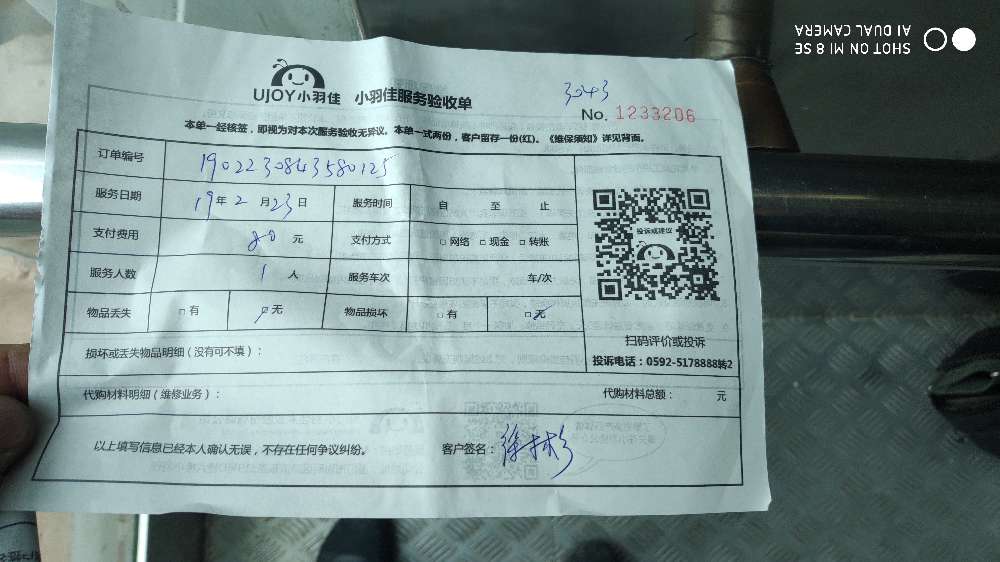 SHOT ON MI 8 SE
AI DUAL CAMERA
UJOY小羽佳 小羽佳服务验收单
3043
No. 1233206
本单一经核签，即视为对本次服务验收无异议。本单一式两份，客户留存一份(红)。《维保须知》详见背面。
订单编号 1902230843580125
服务日期 19年2月23日 服务时间 自 至 止
支付费用 80元 支付方式 □网络 □现金 □转账
服务人数 1人 服务车次 车/次
物品丢失 □有 ☑无 物品损坏 □有 ☑无
投诉或建议
扫码评价或投诉
投诉电话：0592-5178888转2
损坏或丢失物品明细（没有可不填）：
代购材料明细（维修业务）： 代购材料总额： 元
以上填写信息已经本人确认无误，不存在任何争议纠纷。 客户签名：